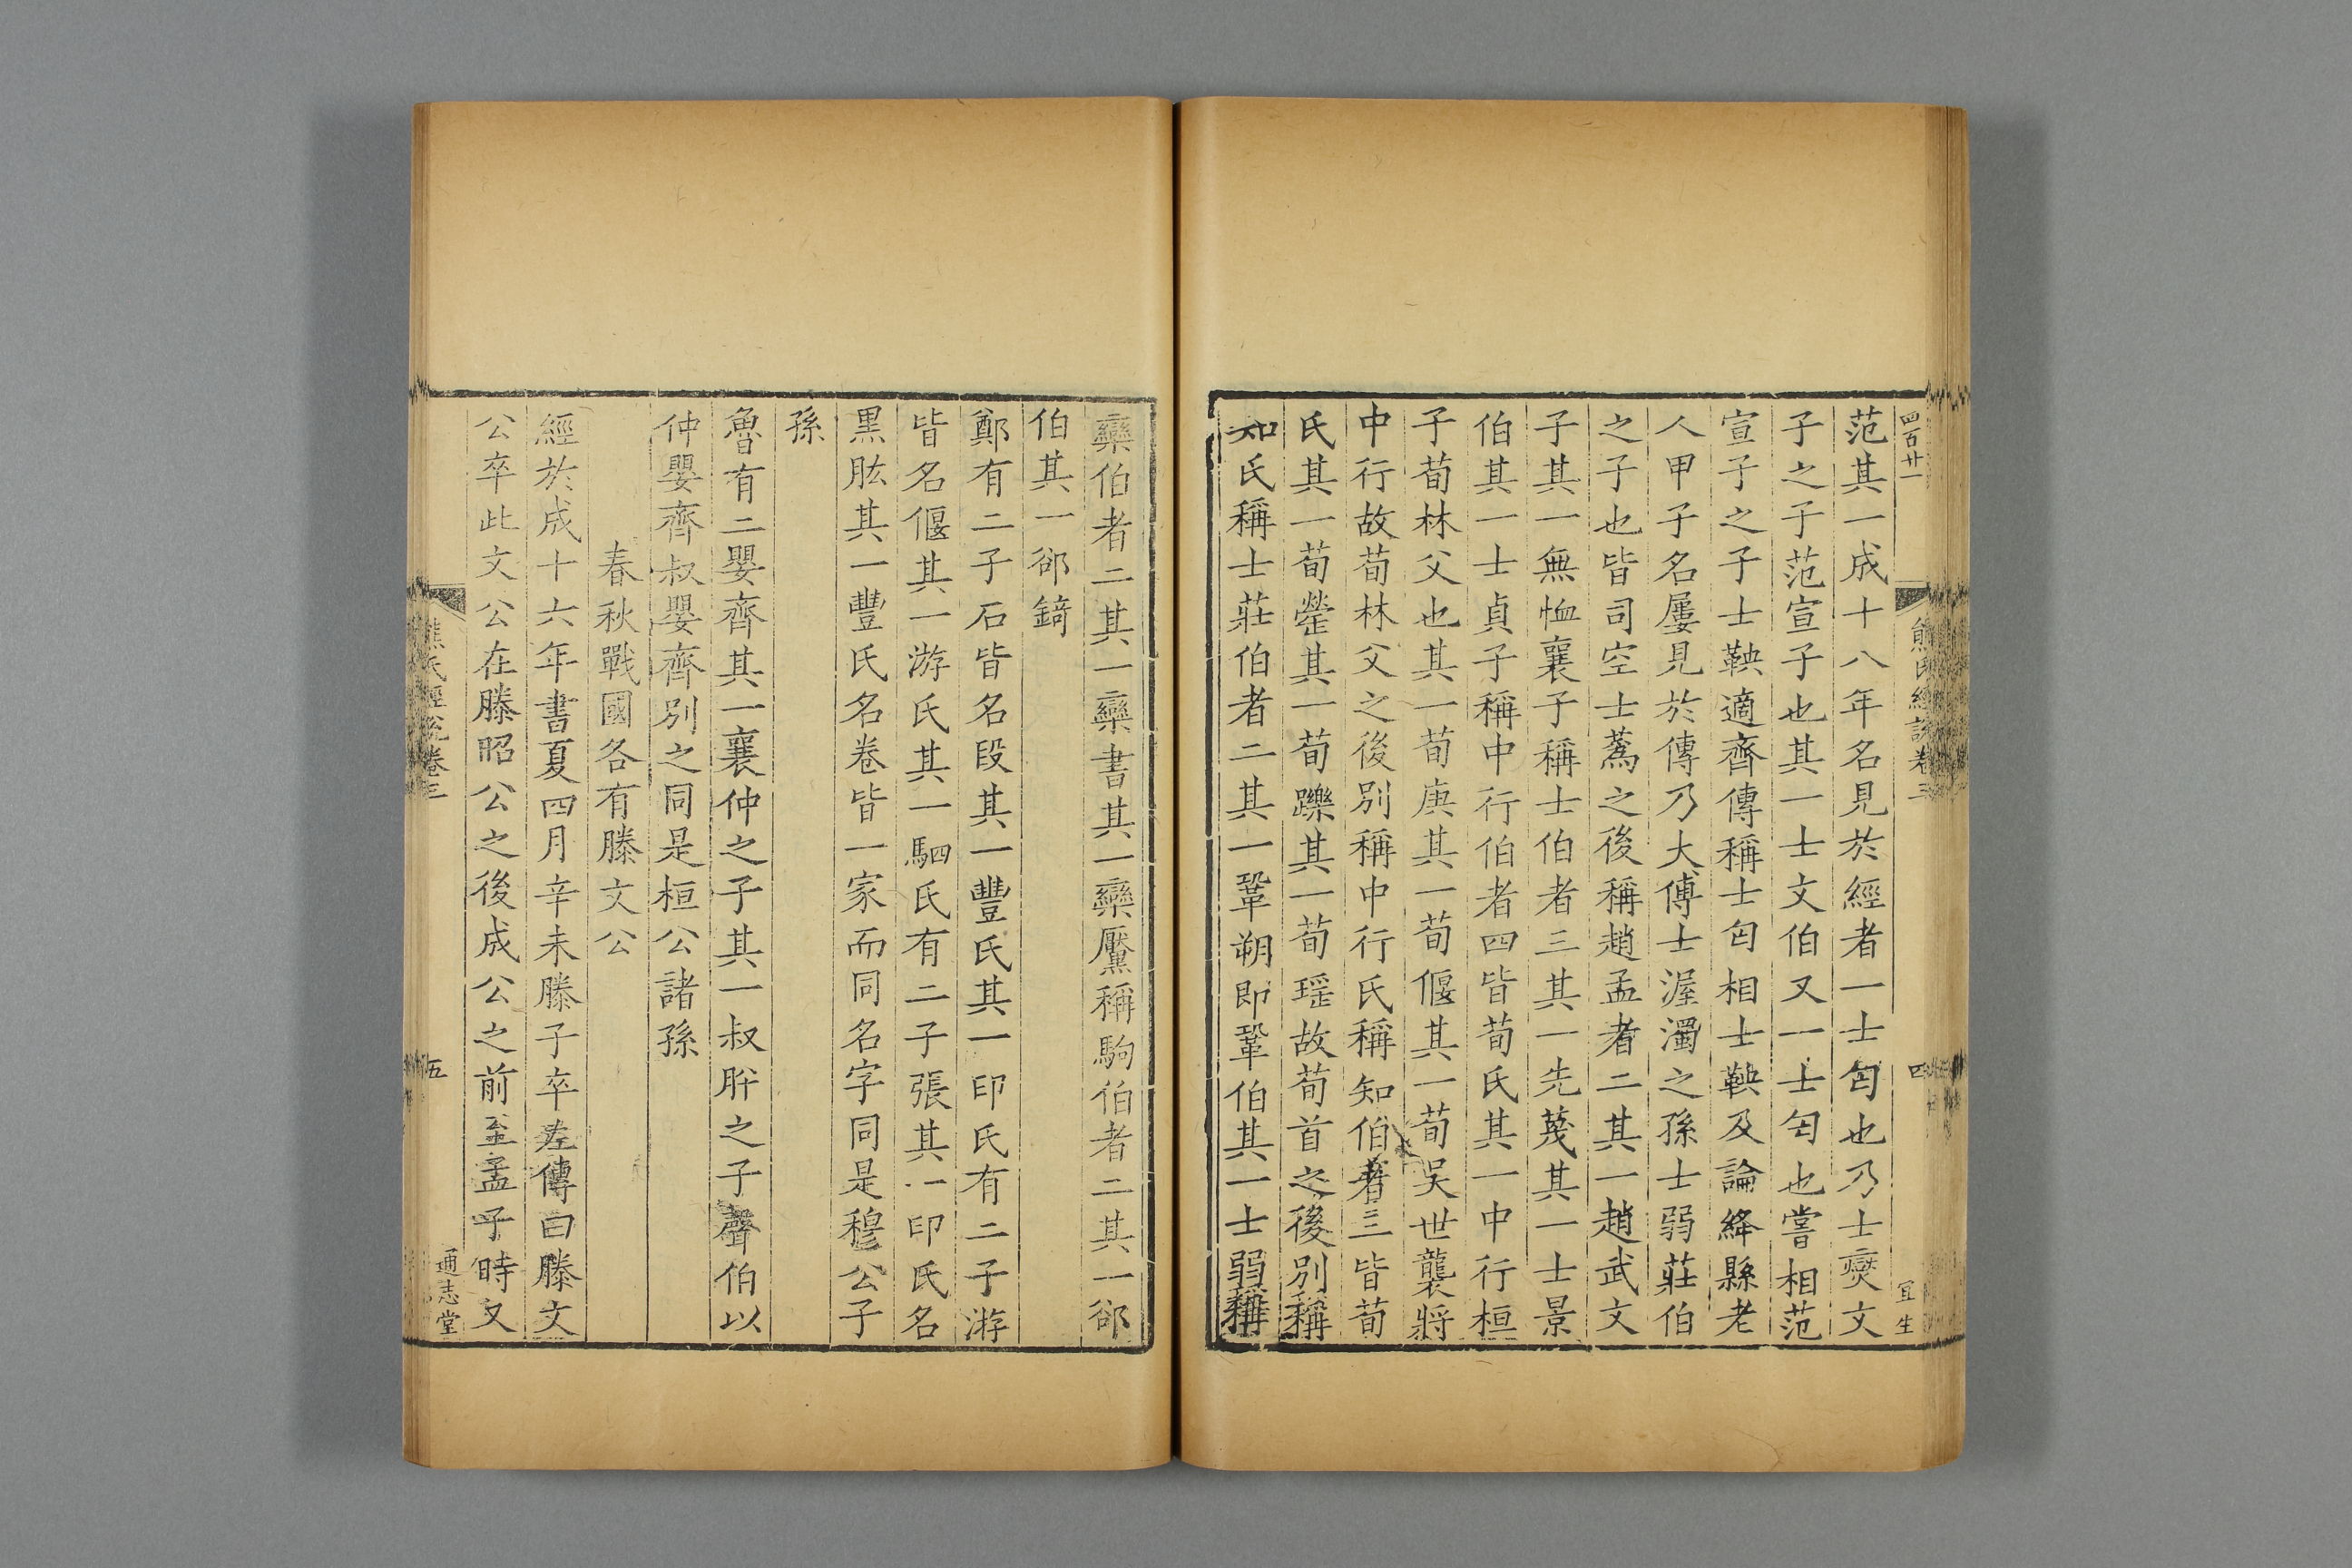 四百廿一
熊氏經說卷三
四
宜生
范其一成十八年名見於經者一士匄也乃士燮文
子之子范宣子也其一士文伯又一士匄也嘗相范
宣子之子士鞅適齊傳稱士匄相士鞅及論絳縣老
人甲子名屢見於傳乃大傅士渥濁之孫士弱莊伯
之子也皆司空士蒍之後稱趙孟者二其一趙武文
子其一無恤襄子稱士伯者三其一先蔑其一士景
伯其一士貞子稱中行伯者四皆荀氏其一中行桓
子荀林父也其一荀庚其一荀偃其一荀吳世襲將
中行故荀林父之後別稱中行氏稱知伯者三皆荀
氏其一荀罃其一荀躒其一荀瑶故荀首之後別稱
知氏稱士莊伯者二其一鞏朔即鞏伯其一士弱稱
欒伯者二其一欒書其一欒黶稱駒伯者二其一郤
伯其一郤錡
鄭有二子石皆名段其一豐氏其一印氏有二子游
皆名偃其一游氏其一駟氏有二子張其一印氏名
黑肱其一豐氏名卷皆一家而同名字同是穆公子
孫
魯有二嬰齊其一襄仲之子其一叔肸之子聲伯以
仲嬰齊叔嬰齊別之同是桓公諸孫
春秋戰國各有滕文公
經於成十六年書夏四月辛未滕子卒左傳曰滕文
公卒此文公在滕昭公之後成公之前至孟子時又
熊氏經說卷三
五
通志堂